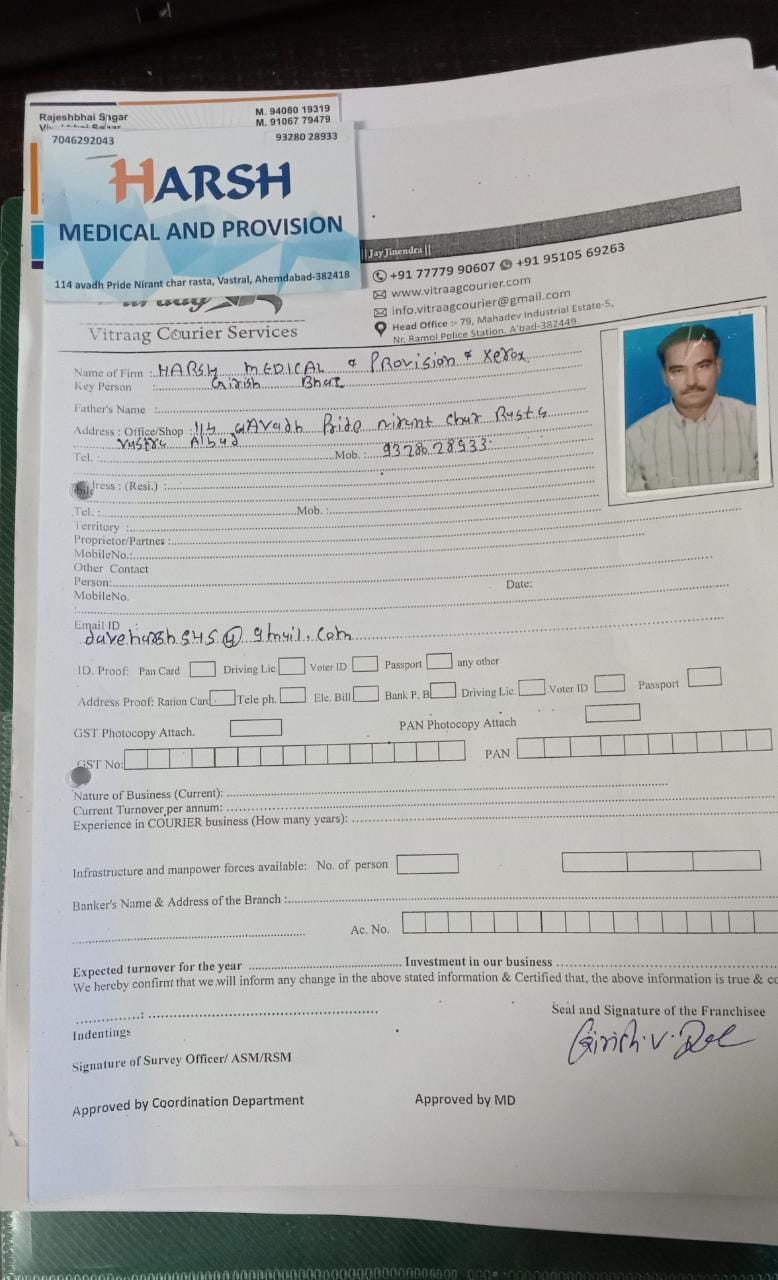 Rajeshbhai Sagar
M. 94080 19319
M. 91067 79479
7046292043
93280 28933
HARSH
MEDICAL AND PROVISION
114 avadh Pride Nirant char rasta, Vastral, Ahemdabad-382418
||JayJinendra||
+91 77779 90607 +91 95105 69263
www.vitraagcourier.com
info.vitraagcourier@gmail.com
Head Office :- 79, Mahadev Industrial Estate-5,
Nr. Ramol Police Station, A'bad-382449.
Vitraag Courier Services
Name of Firm :. HARSH MEDICAL & PROVISION & Xerox
Key Person : Girish
Father's Name :
Address : Office/Shop : 114 Avadh Pride nirant char Rusta
Tel. : Mob. : 9328028933
dress : (Resi.) :
Tel. : Mob. :
Territory :
Proprietor/Partner :
MobileNo.:
Other Contact
Person: Date:
MobileNo.
:
Email ID :
daveharsh545@gmail.com
ID. Proof: Pan Card Driving Lic Voter ID Passport any other
Address Proof: Ration Card Tele ph. Ele. Bill Bank P. B Driving Lic. Voter ID Passport
GST Photocopy Attach. PAN Photocopy Attach
GST No: PAN
Nature of Business (Current):
Current Turnover per annum:
Experience in COURIER business (How many years):
Infrastructure and manpower forces available: No. of person
Banker's Name & Address of the Branch :
Ac. No.
Expected turnover for the year Investment in our business
We hereby confirm that we will inform any change in the above stated information & Certified that, the above information is true & co
Seal and Signature of the Franchisee
Indentings
Girish.V.
Signature of Survey Officer/ ASM/RSM
Approved by Coordination Department Approved by MD